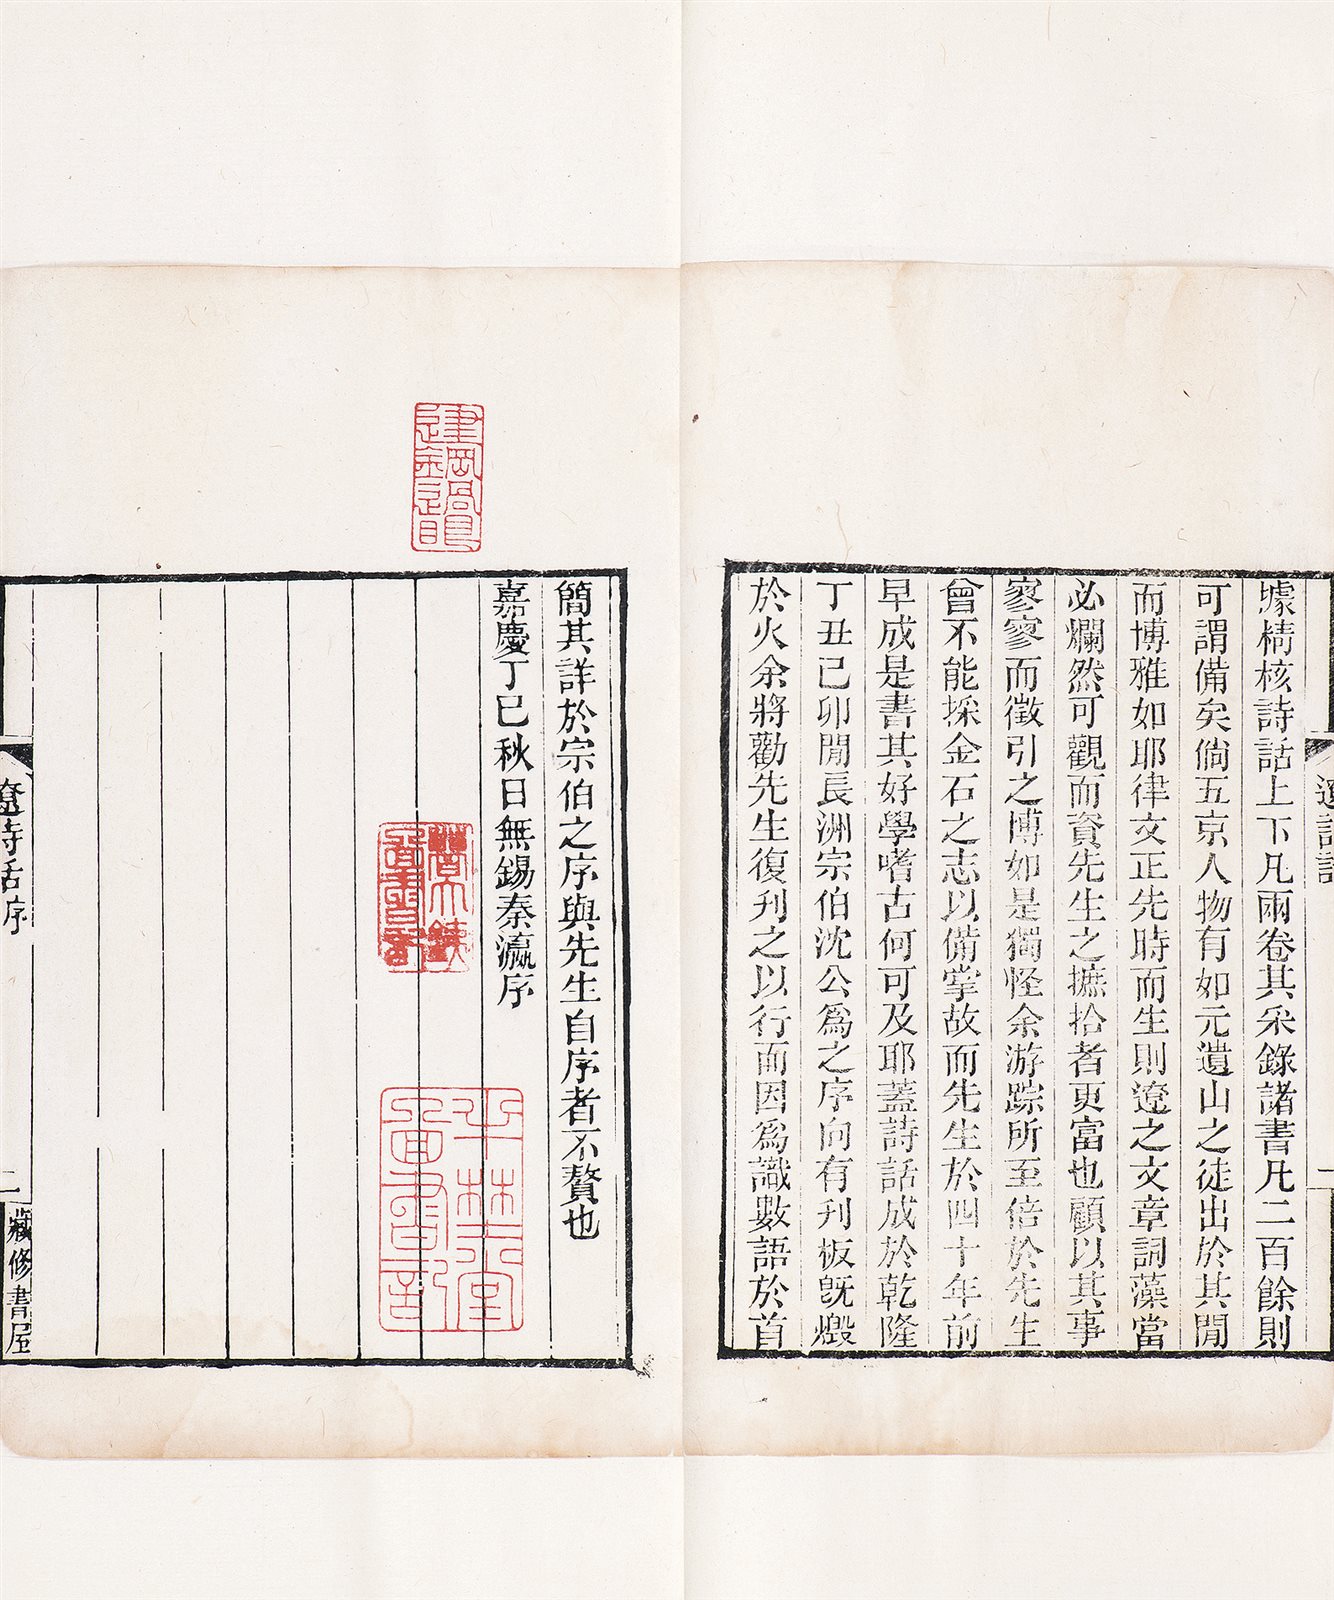 據精核詩話上下凡兩卷其采錄諸書凡二百餘則
可謂備矣倘五京人物有如元遺山之徒出於其閒
而博雅如耶律文正先時而生則遼之文章詞藻當
必爛然可觀而資先生之摭拾者更富也顧以其事
寥寥而徵引之博如是獨怪余游踪所至倍於先生
曾不能採金石之志以備掌故而先生於四十年前
早成是書其好學嗜古何可及耶蓋詩話成於乾隆
丁丑己卯閒長洲宗伯沈公為之序向有刊板旣燬
於火余將勸先生復刋之以行而因為識數語於首
簡其詳於宗伯之序與先生自序者不贅也
嘉慶丁巳秋日無錫秦瀛序
遼詩話序
二
藏修書屋